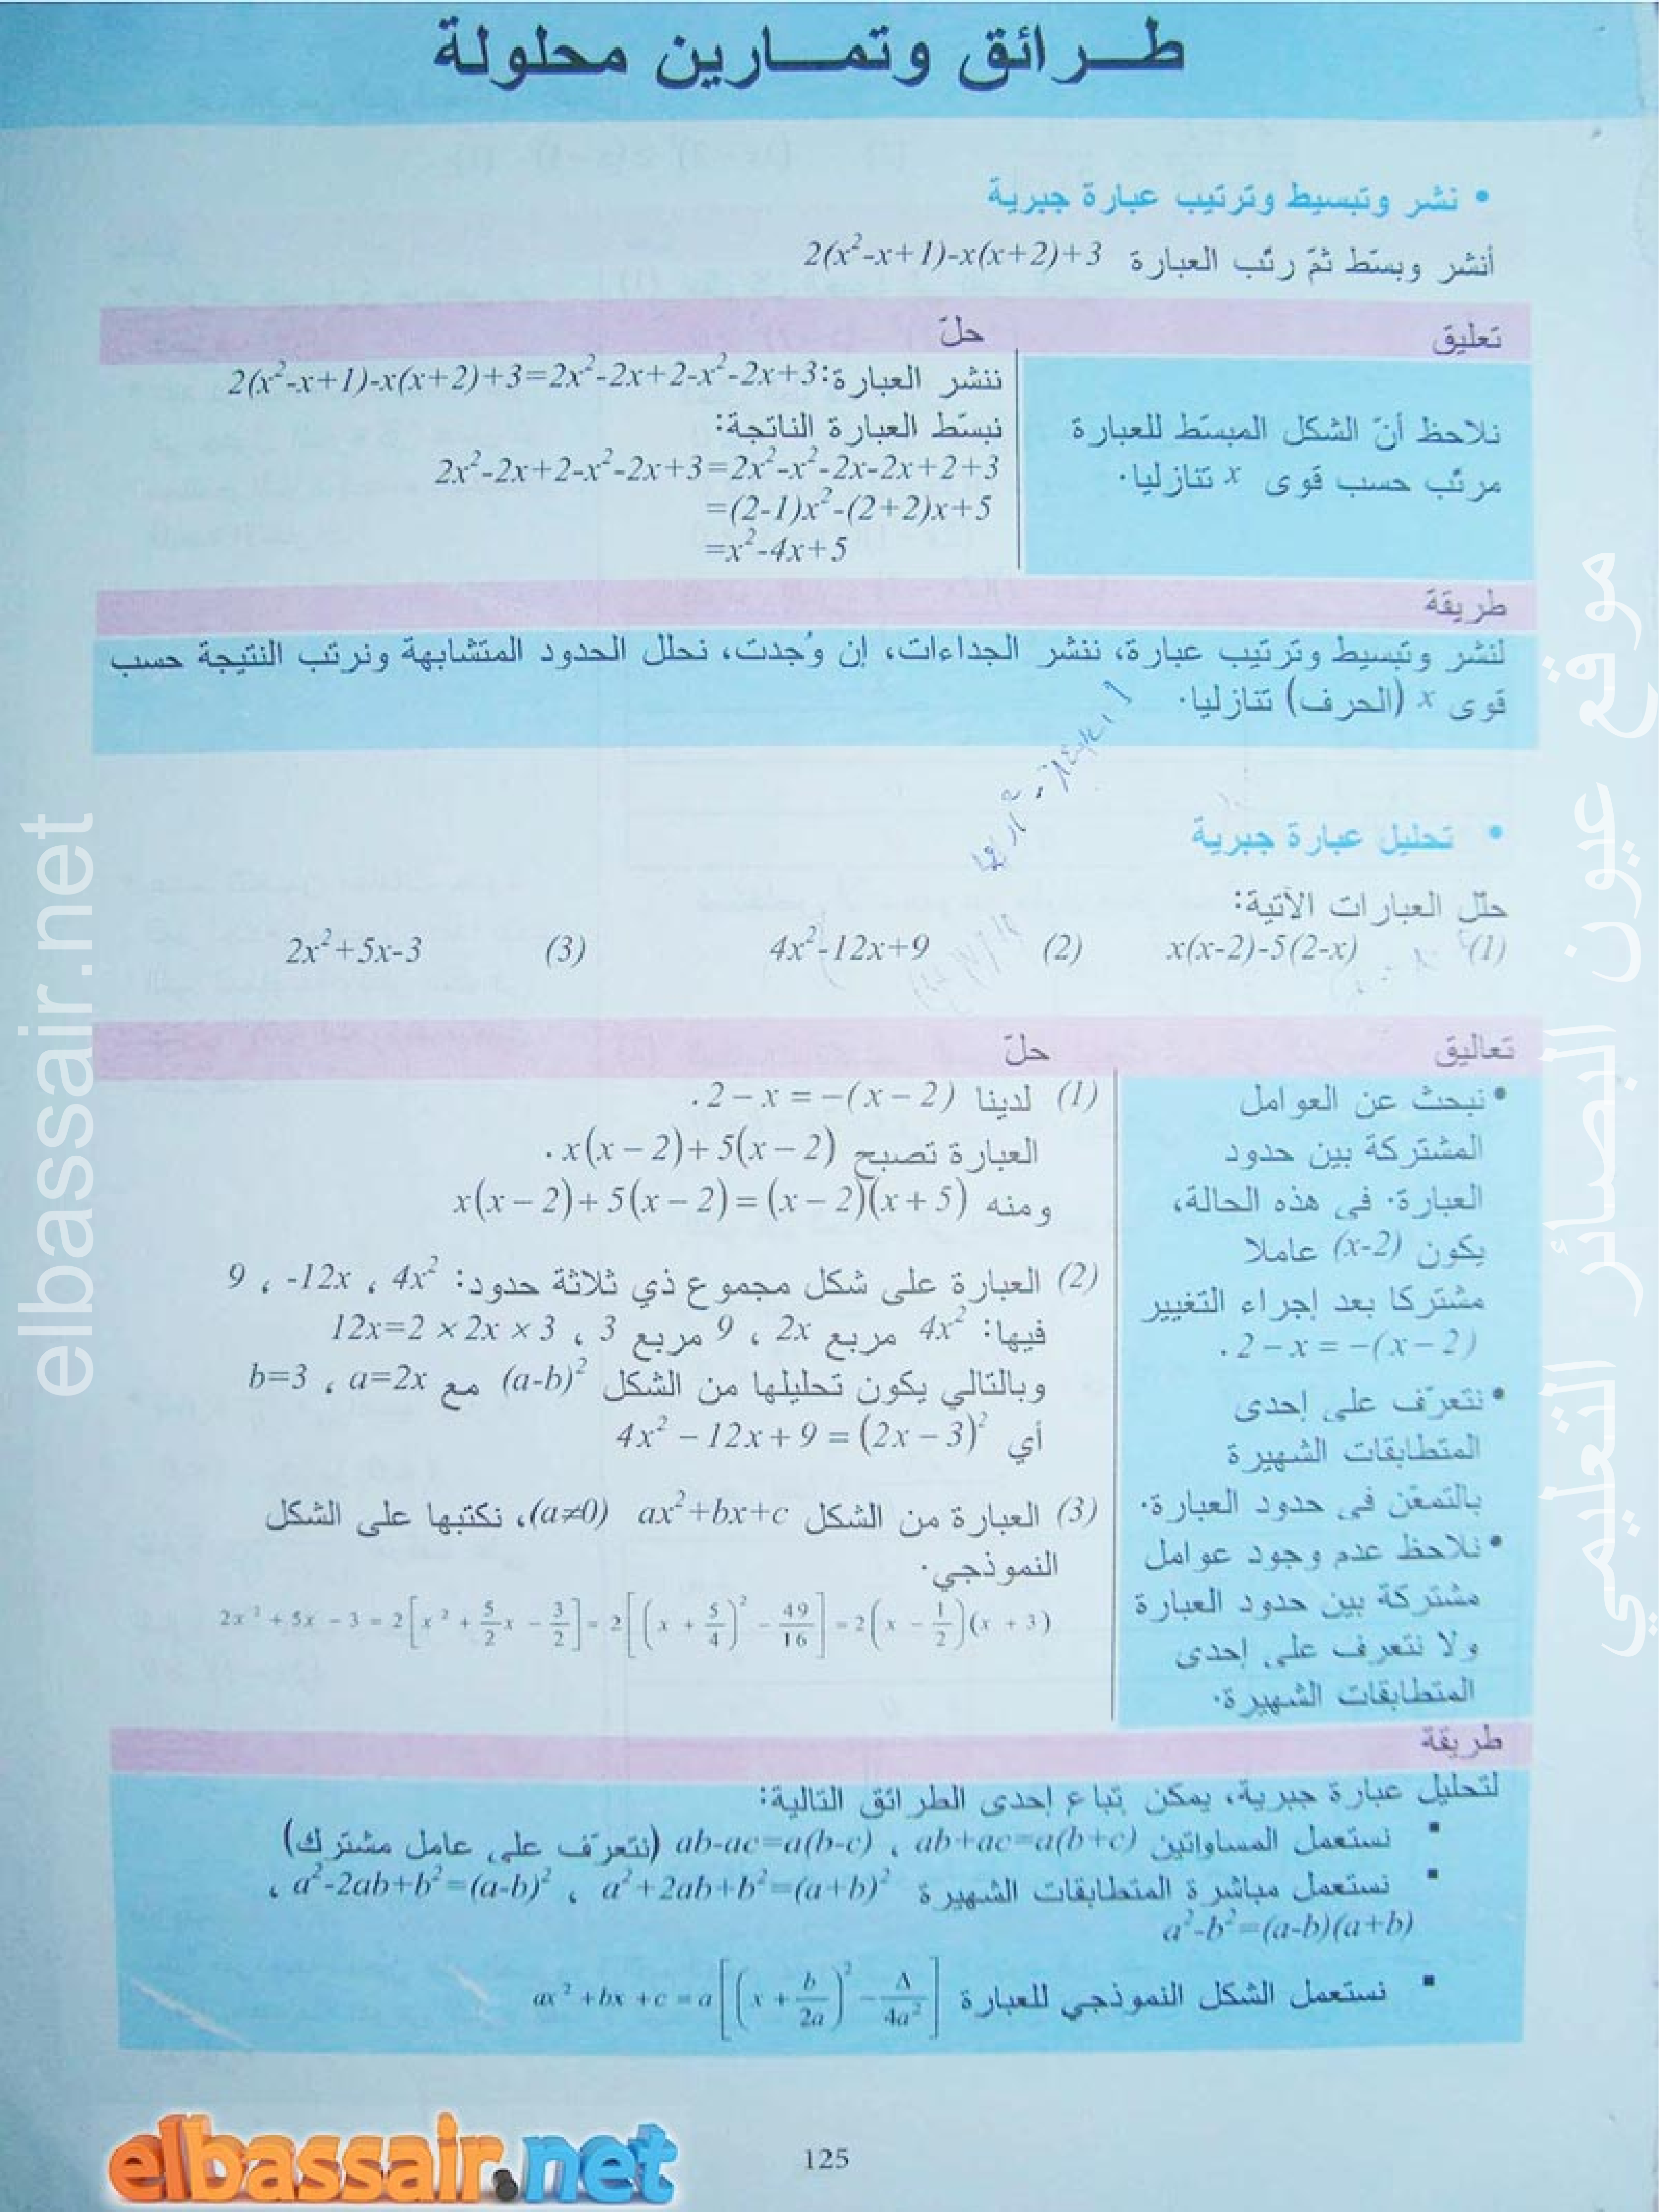 طرائق وتمارين محلولة
• نشر وتبسيط وترتيب عبارة جبرية
أنشر وبسّط ثمّ رتّب العبارة 2(x²-x+1)-x(x+2)+3
تعليق
نلاحظ أنّ الشكل المبسّط للعبارة
مرتّب حسب قوى x تنازليا.
حلّ
ننشر العبارة: 2(x²-x+1)-x(x+2)+3=2x²-2x+2-x²-2x+3
نبسّط العبارة الناتجة:
2x²-2x+2-x²-2x+3=2x²-x²-2x-2x+2+3
=(2-1)x²-(2+2)x+5
=x²-4x+5
طريقة
لنشر وتبسيط وترتيب عبارة، ننشر الجداءات، إن وُجدت، نحلل الحدود المتشابهة ونرتب النتيجة حسب
قوى x (الحرف) تنازليا.
• تحليل عبارة جبرية
حلّل العبارات الآتية:
(1) x(x-2)-5(2-x) (2) 4x²-12x+9 (3) 2x²+5x-3
تعاليق
• نبحث عن العوامل
المشتركة بين حدود
العبارة. في هذه الحالة،
يكون (x-2) عاملا
مشتركا بعد إجراء التغيير
2 – x = –( x – 2) .
• نتعرّف على إحدى
المتطابقات الشهيرة
بالتمعّن في حدود العبارة.
• نلاحظ عدم وجود عوامل
مشتركة بين حدود العبارة
ولا نتعرف على إحدى
المتطابقات الشهيرة.
حلّ
(1) لدينا 2 – x = –( x – 2) .
العبارة تصبح x(x – 2)+5(x – 2) .
ومنه x(x – 2)+5(x – 2) = (x – 2)(x + 5)
(2) العبارة على شكل مجموع ذي ثلاثة حدود: 4x² ، -12x ، 9
فيها: 4x² مربع 2x ، 9 مربع 3 ، 12x=2 × 2x × 3
وبالتالي يكون تحليلها من الشكل (a-b)² مع a=2x ، b=3
أي 4x² – 12x + 9 = (2x – 3)²
(3) العبارة من الشكل ax²+bx+c (a≠0)، نكتبها على الشكل
النموذجي.
2x² + 5x – 3 = 2[x² + 5/2 x – 3/2] = 2[(x + 5/4)² – 49/16] = 2(x – 1/2)(x + 3)
طريقة
لتحليل عبارة جبرية، يمكن تباع إحدى الطرائق التالية:
▪ نستعمل المساواتين ab+ac=a(b+c) ، ab-ac=a(b-c) (نتعرّف على عامل مشترك)
▪ نستعمل مباشرة المتطابقات الشهيرة a²+2ab+b²=(a+b)² ، a²-2ab+b²=(a-b)² ،
a²-b²=(a-b)(a+b)
▪ نستعمل الشكل النموذجي للعبارة ax² + bx + c = a[(x + b/2a)² – Δ/4a²]
125
elbassair.net
elbassair.net
موقع عيون البصائر التعليمي